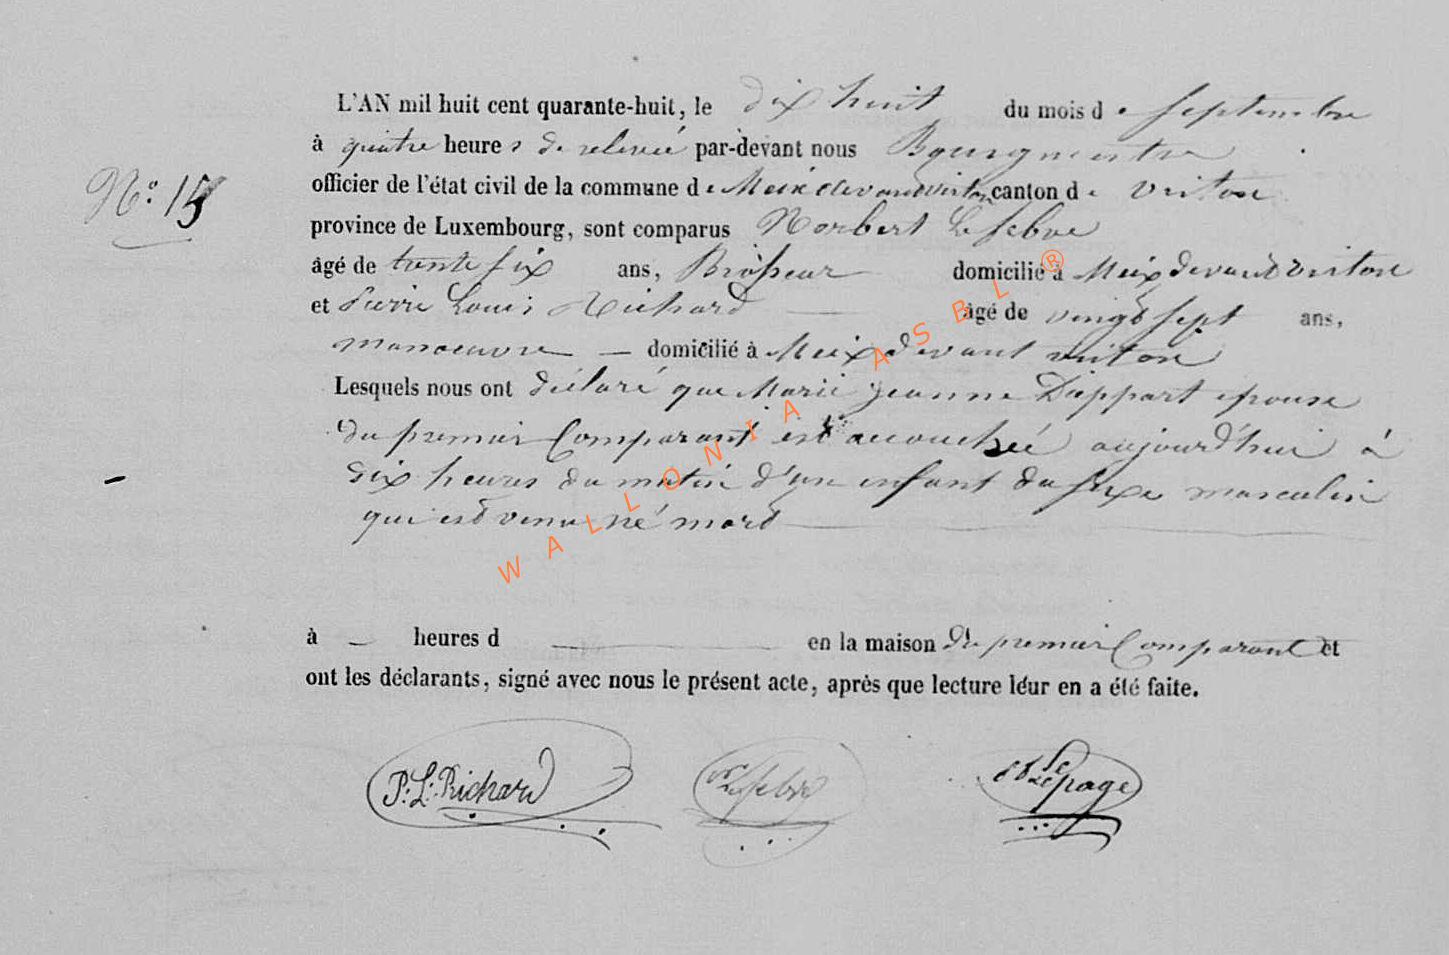 L'AN mil huit cent quarante-huit, le dix huit du mois de septembre
à quatre heures de relevée par-devant nous Bourgmestre
N° 15
officier de l'état civil de la commune de Meix devant virton canton de virton
province de Luxembourg, sont comparus Norbert Lefebve
âgé de trente six ans, Brasseur domicilié à Meix devant virton
et Pierre Louis Richard âgé de vingt sept ans,
manoeuvre domicilié à Meix devant virton
Lesquels nous ont déclaré que Marie jeanne Dappart epouse
du premier Comparant est accouchée aujourd'hui à
dix heures du matin d'un enfant du sexe masculin
qui est venu né mord
à — heures d en la maison du premier Comparant et
ont les déclarants, signé avec nous le présent acte, après que lecture leur en a été faite.
P. L. Richard Lefebve Lepage
WALLONIA ASBL ®